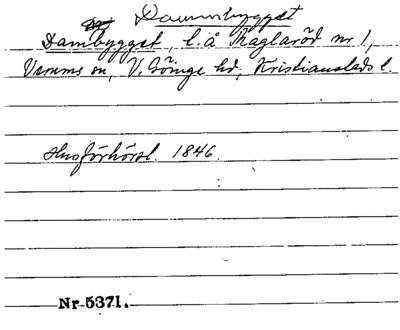 Dammbygget
Dambygget, l. å Raglaröd nr 1,
Verums sn, V. Göinge hd, Kristianstads l.
Husförhörsl. 1846.
Nr 5371.